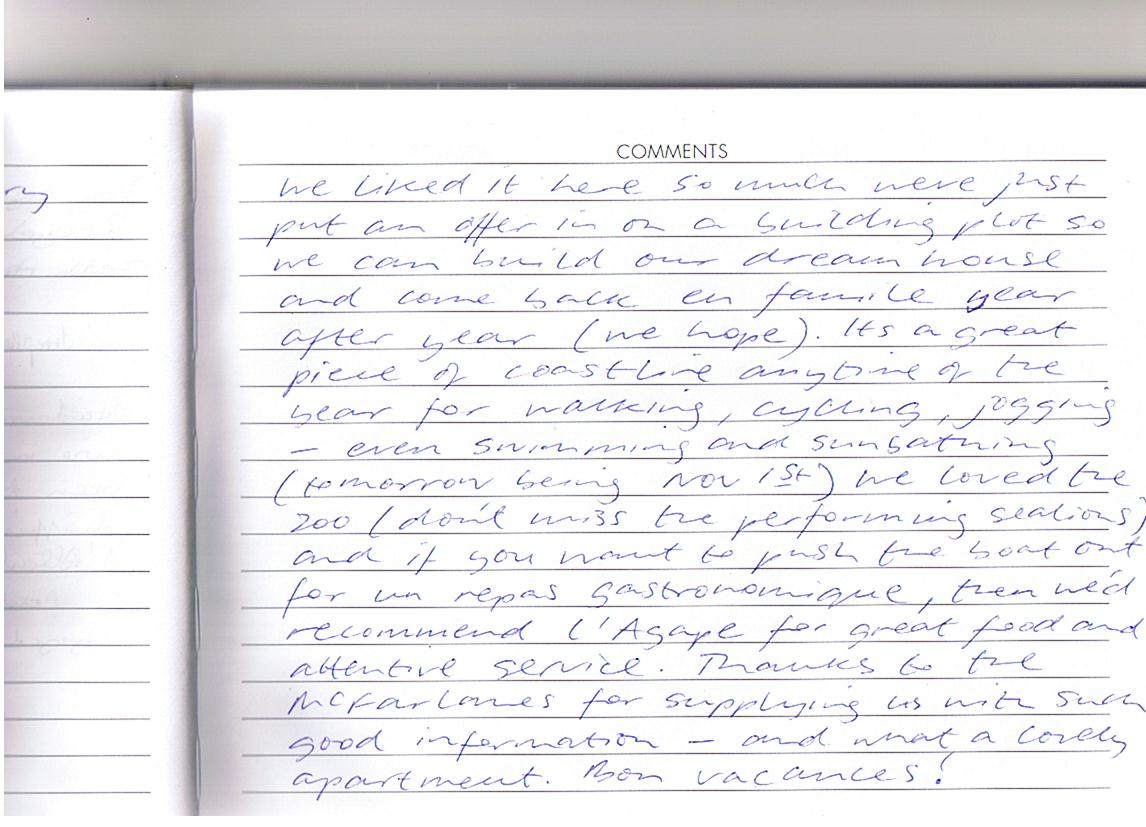 COMMENTS
we liked it here so much weve just
put an offer in on a building plot so
we can build our dream house
and come back en famile year
after year (we hope). Its a great
piece of coastline anytime of the
year for walking, cycling, jogging
– even swimming and sunbathing
(tomorrow being Nov 1st) we loved the
zoo (don't miss the performing sealions)
and if you want to push the boat out
for un repas gastronomique, then we'd
recommend l'Agape for great food and
attentive service. Thanks to the
McFarlanes for supplying us with such
good information – and what a lovely
apartment. Bon vacances!